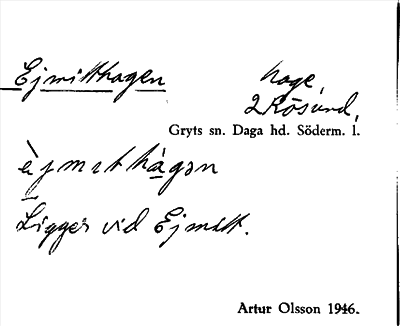 Ejmitthagen hage,
2 Rösund,
Gryts sn. Daga hd. Söderm. l.
èjmıthàgən
Ligger vid Ejmitt.
Artur Olsson 1946.